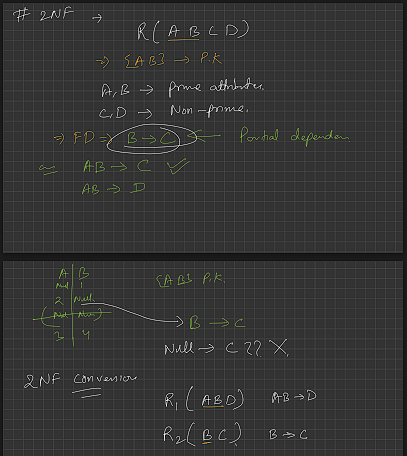 # 2NF →
R ( A B C D )
→ {AB} → P.K
A, B → prime attributes.
C, D → Non-prime.
⇒ FD ⇒ B → C ← Partial dependen
AB → C ✓
AB → D
A B {AB} P.K.
Null 1
2 Null
Null Null → B → C
3 4
Null → C ?? X
2NF conversion
R1 ( ABD ) AB → D
R2 ( BC ) B → C